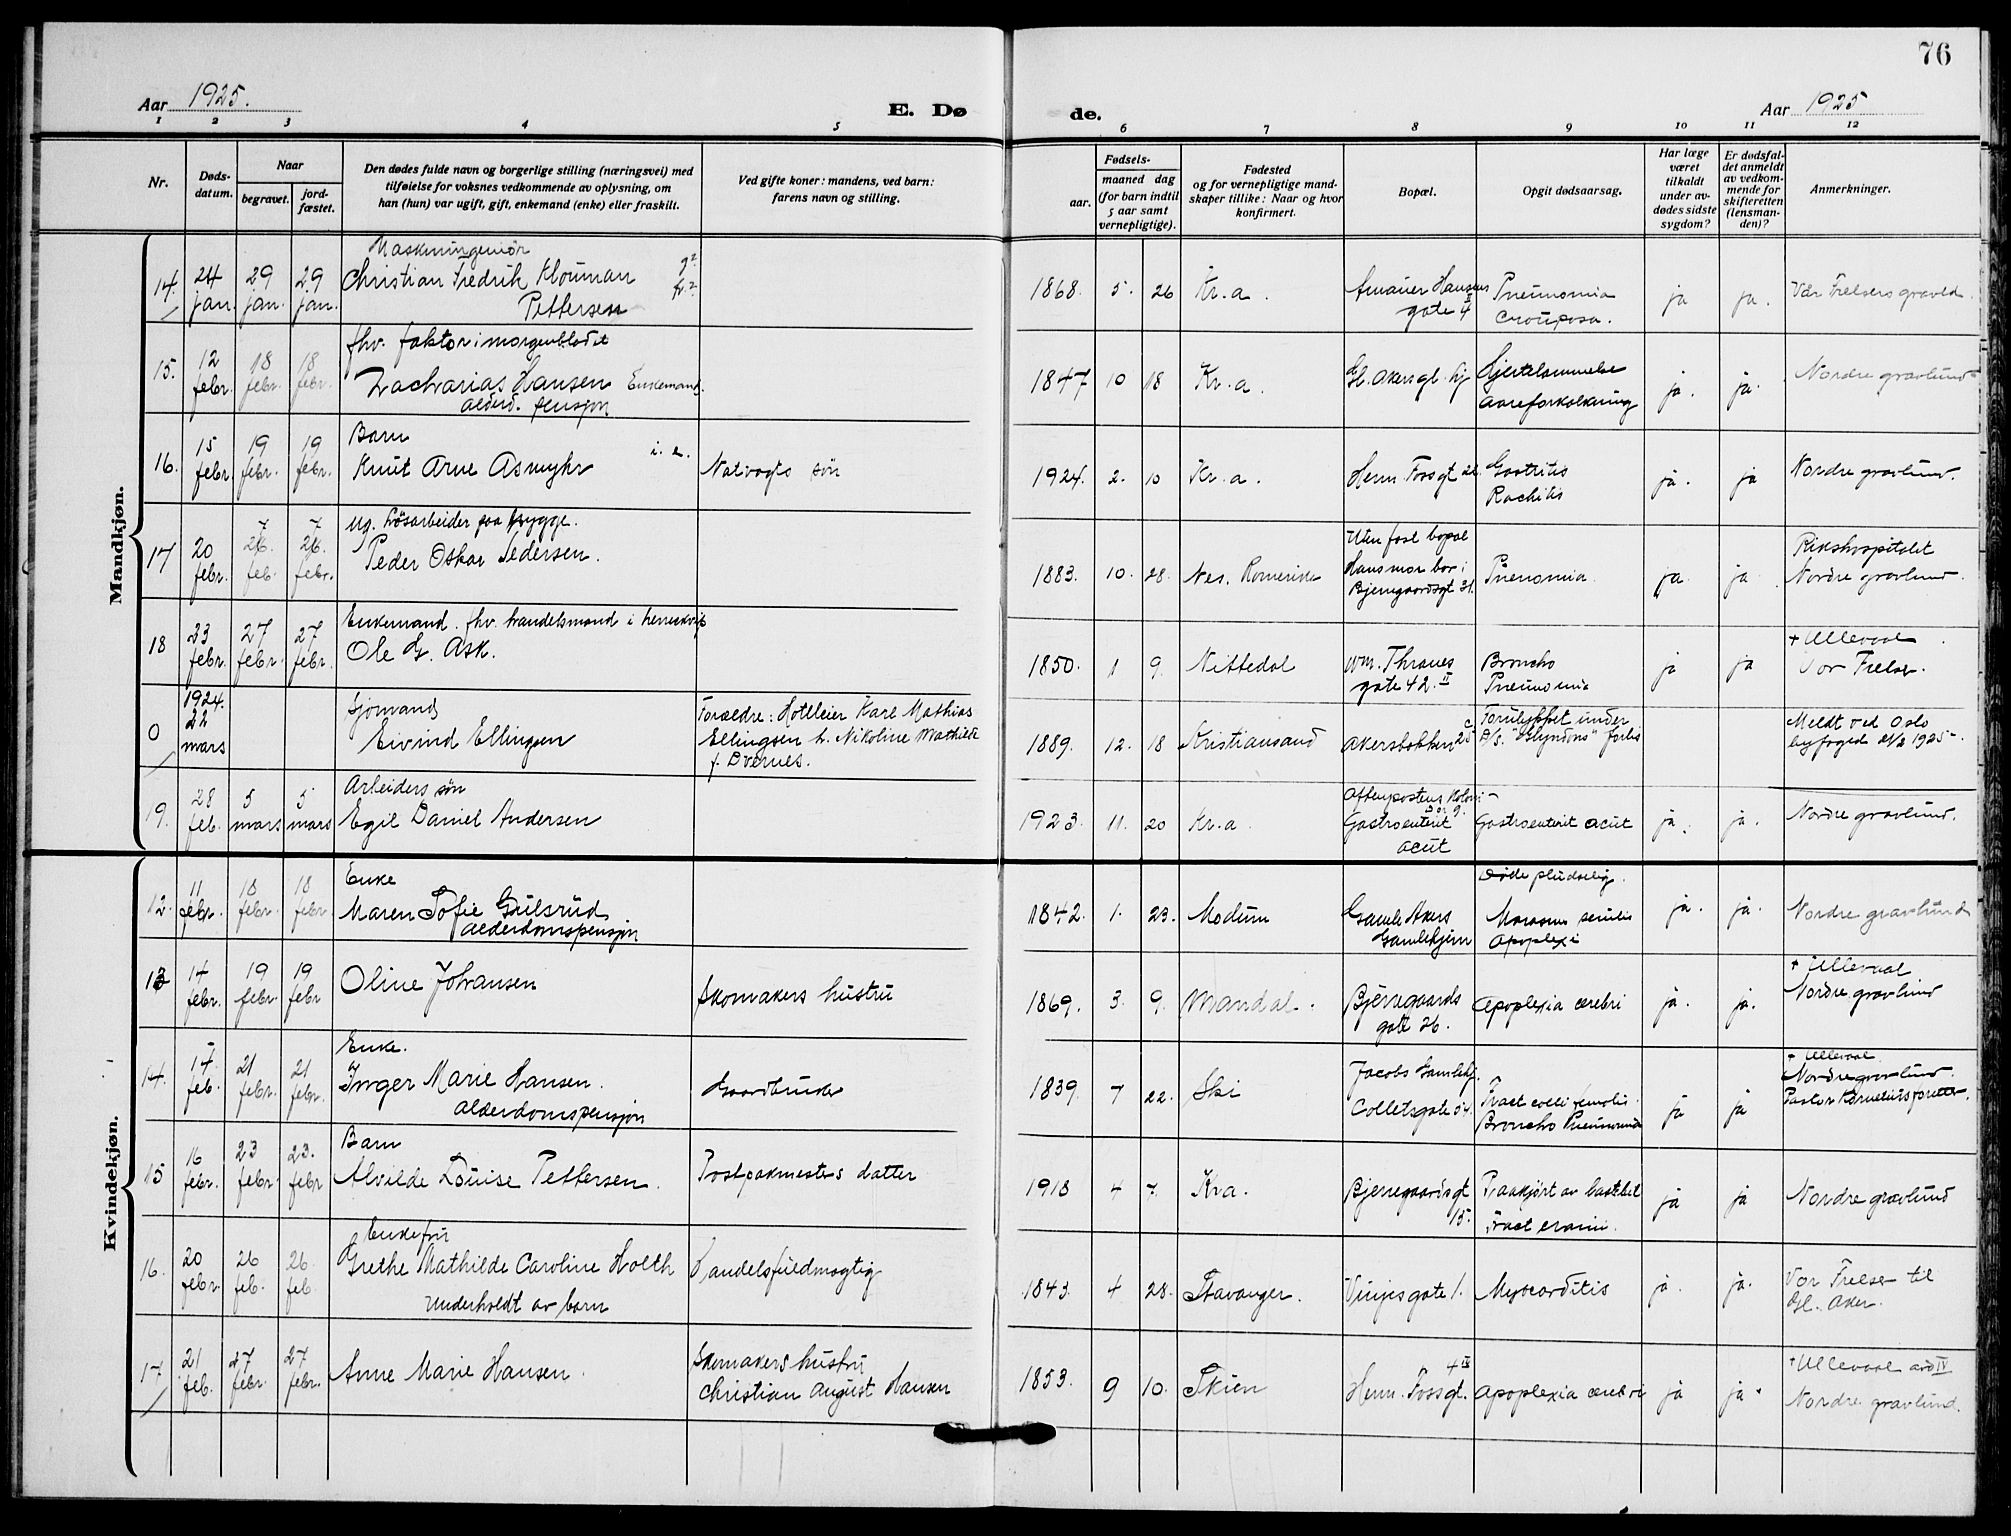 76
Aar 1925.
E. Dø
de.
Aar 1925
1 2 3 4 5 6 7 8 9 10 11 12
Nr.
Døds-
datum.
Naar
begravet.
jord-
fæstet.
Den dødes fulde navn og borgerlige stilling (næringsvei) med
tilføielse for voksnes vedkommende av oplysning, om
han (hun) var ugift, gift, enkemand (enke) eller fraskilt.
Ved gifte koner: mandens, ved barn:
farens navn og stilling.
Fødsels-
aar.
maaned dag
(for barn indtil
5 aar samt
vernepligtige).
Fødested
og for vernepligtige mand-
skaper tillike: Naar og hvor
konfirmert.
Bopæl.
Opgit dødsaarsag.
Har læge
været
tilkaldt
under av-
dødes sidste
sygdom?
Er dødsfal-
det anmeldt
av vedkom-
mende for
skifteretten
(lensman-
den)?
Anmerkninger.
Mandkjøn.
Maskiningeniør
14. 24 29 29 Christian Fredrik Klouman
jan. jan. jan. Pettersen
1868. 5. 26 Kr.a. Amauer Hansens Pneumonia ja ja. Vår Frelsers gravld.
gate 4 II crouposa.
fhv. faktor i morgenbladet
15. 12 18 18 Zacharias Hansen Enkemand.
febr. febr. febr. alderd. pensjon
1847 10 18 Kr.a. Gl. Akersgl. hj Hjertelammelse ja. ja. Nordre gravlund
aareforkalkning
Barn
16. 15 19 19 Knut Arne Asmyhr Natvagts søn
febr. febr. febr.
1924. 2. 10 Kr.a. Herm. Fossgt Gastritis ja. ja Nordre gravlund.
Rachitis
ug. Løsarbeider paa brygge.
17 20 26 7 26 7 Peder Oskar Pedersen.
febr. feb. febr.
Uten fast bopæl
1883. 10. 28. Nes. Romerike Hans mor bor i Pnenomia. ja. ja. Rikshospitalet
Bjerregaardsgt 31. Nordre gravlund.
Enkemand. fhv. handelsmand i
18 23 27 27 Ole G. Ask.
febr. febr. febr.
1850. 1 9. Nittedal Wm. Thranes Broncho ja ja + Ullevaal
gate 42. II Pneumonia Vor Frelser.
1924.
0 22 Sjømand
mars Eivind Ellingsen
Forældre: Hotelleier Karl Mathias
Ellingsen h. Nikoline Mathilde
f. Dvernes.
1889. 12. 18 Kristiansand Akersbakken 25 c Forulykket under
D/S. forlis
Meldt ved Oslo
byfoged 2/2 1925.
Arbeiders søn
19. 28 5 5 Egil Daniel Andersen
feb. mars mars
1923. 11. 20 Kr.a. Aftenpostens Koloni-
Gastroenterit Gastroenterit acut ja. ja. Nordre gravlund.
acut
Kvindekjøn.
Enke
12. 11 18 18 Maren Sofie Gulsrud
febr. febr. febr. alderdomspensjon
Døde pludselig.
1842. 1. 23. Modum Gamle Akers Marasmus senilis ja. ja. Nordre gravlund
Gamlehjem Apoplexi
13 14 19 19 Oline Johansen Skomakers hustru
febr. febr. febr
1869. 3. 9. Mandal. Bjerregaards Apoplexia cerebri ja. ja. + Ullevaal
gate 26. Nordre gravlund
Enke.
14. 14 21 21 Inger Marie Hansen. Gaardbruker
feb. febr. febr. alderdomspensjon
1839. 7 22. Ski Jacobs Gamlehj.
Colletsgate 54. Fract colli femoris. ja ja
Broncho Pneumonia
+ Ullevaal
Nordre gravlund.
Pastor Kornelius forretter.
Barn
15 16 23 23. Alvilde Louise Pettersen. Postpakmesters datter
febr. febr. febr
1918 4 7. Kra. Bjerregaardsgt Paakjørt av lastebil ja ja Nordre gravlund
15. Fract cranii.
Enkefru
16. 20 26 26. Grethe Mathilde Caroline Holth Handelsfuldmægtig
febr. feb. feb. Underholdt av barn
1843. 4 28. Stavanger. Vinjesgate 1. Myocarditis ja. ja. Vor Frelser til
Gl. Aker.
17. 21 27 27 Anne Marie Hansen. Skomakers hustru
feb. febr. febr. Christian August Hansen
1853. 9 10. Skien Herm. Fossgt. 4 IV Apoplexia cerebri ja ja. + Ullevaal avd IV
Nordre gravlund.